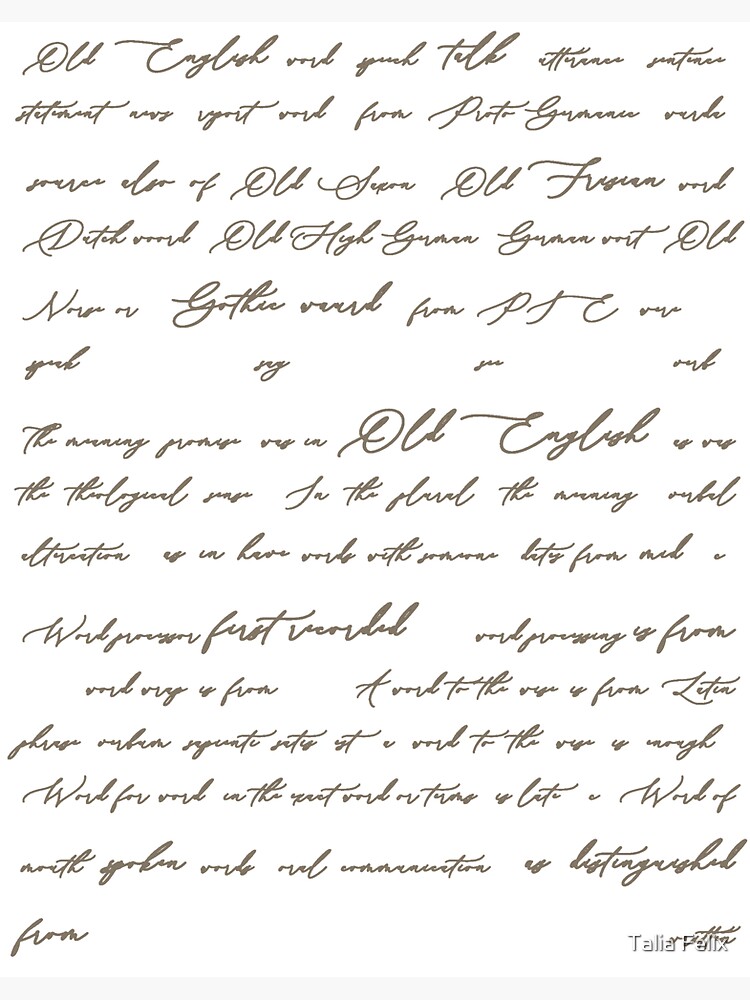 Old English word speech talk utterance sentence
statement news report word from Proto Germanic wurda
source also of Old Saxon Old Frisian word
Dutch woord Old High German German wort Old
Norse or Gothic waurd from P I E were
speak say see verb
The meaning promise was in Old English as was
the theological sense In the plural the meaning verbal
altercation as in have words with someone dates from mid c
Word processor first recorded word processing is from
word wrap is from A word to the wise is from Latin
phrase verbum sapienti satis est a word to the wise is enough
Word for word in the exact word or terms is late c Word of
mouth spoken words oral communication as distinguished
from written
Talia Felix